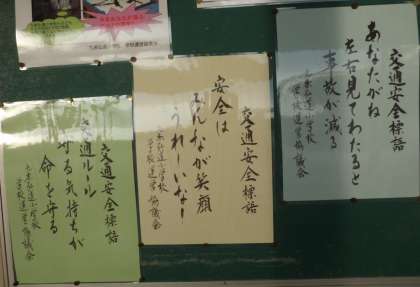 交通安全標語
あなたがね
左右見てわたると
事故が減る
学校運営協議会
交通安全標語
安全は
みんなが笑顔
うれしいなー
学校運営協議会
交通安全標語
交通ルール
守る気持ちが
命を守る
学校運営協議会